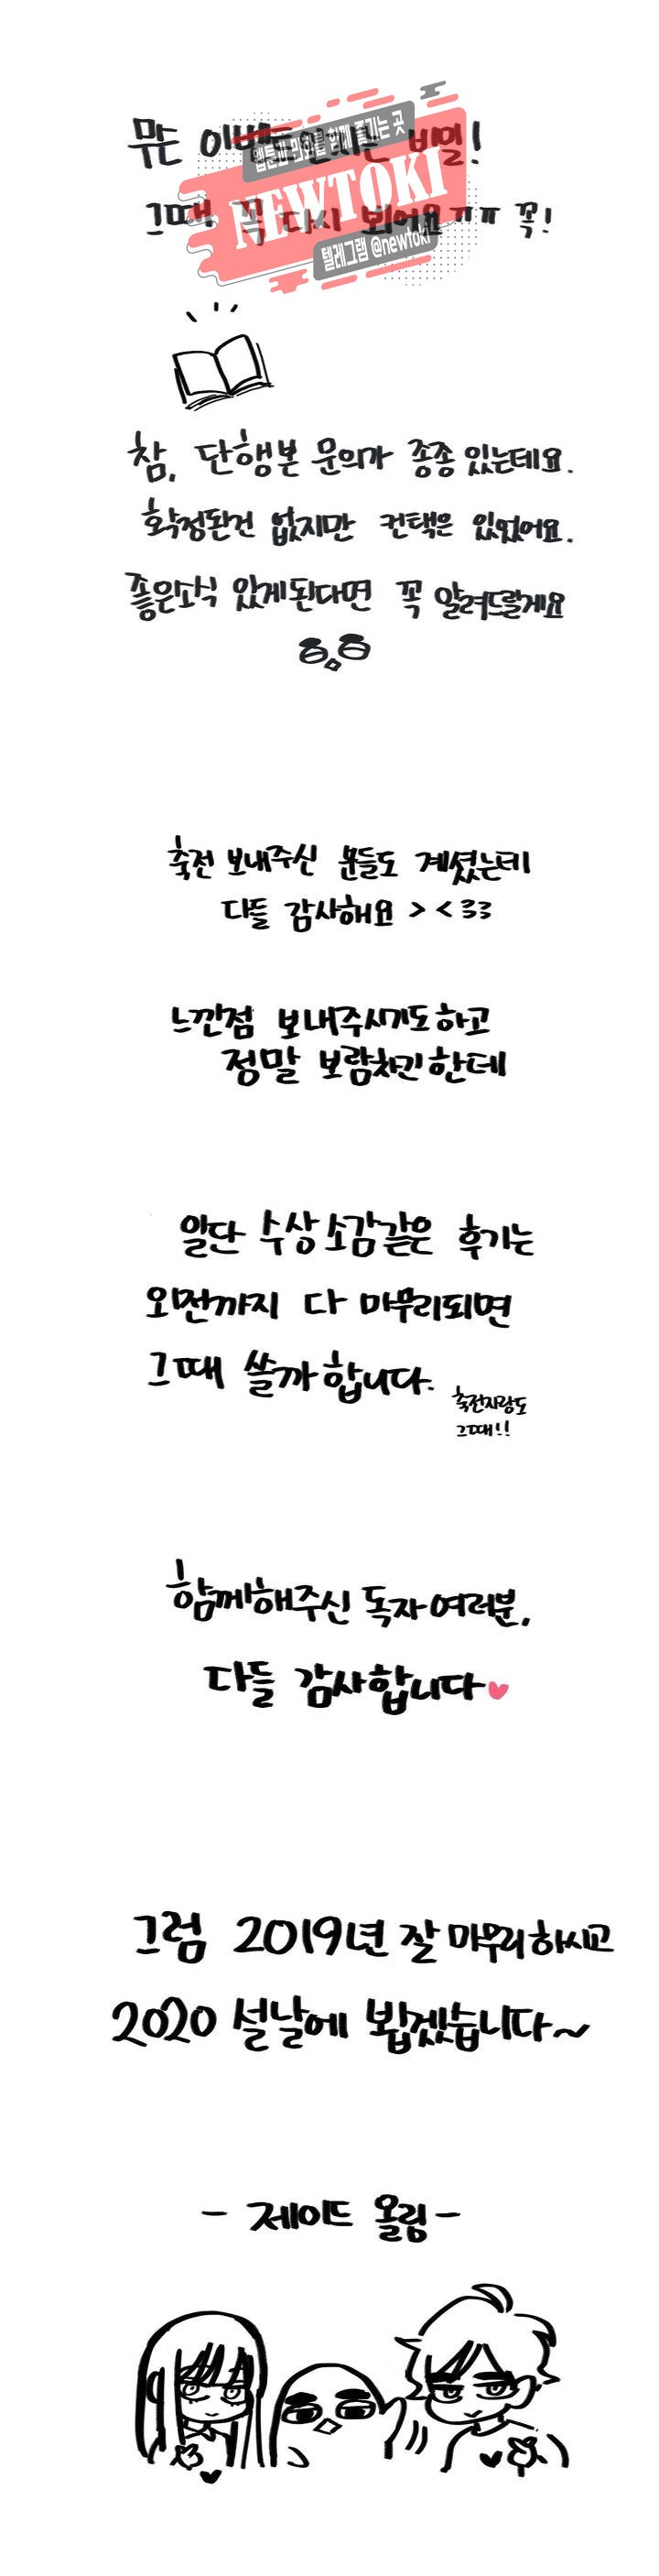 무슨 이벤트인지는 비밀!
웹툰과 만화를 함께 즐기는 곳
NEWTOKI
그때 꼭 다시 뵈어요ㅠㅠ 꼭!
텔레그램 @newtoki
참, 단행본 문의가 종종 있는데요.
확정된건 없지만 컨택은 있었어요.
좋은소식 있게된다면 꼭 알려드릴게요
축전 보내주신 분들도 계셨는데
다들 감사해요 > < 33
느낀점 보내주시기도하고
정말 보람차긴한데
일단 수상소감같은 후기는
외전까지 다 마무리되면
그때 쓸까합니다.
축전자랑도
그때!!
함께해주신 독자여러분,
다들 감사합니다
그럼 2019년 잘 마무리하시고
2020 설날에 뵙겠습니다~
- 제이드 올림 -